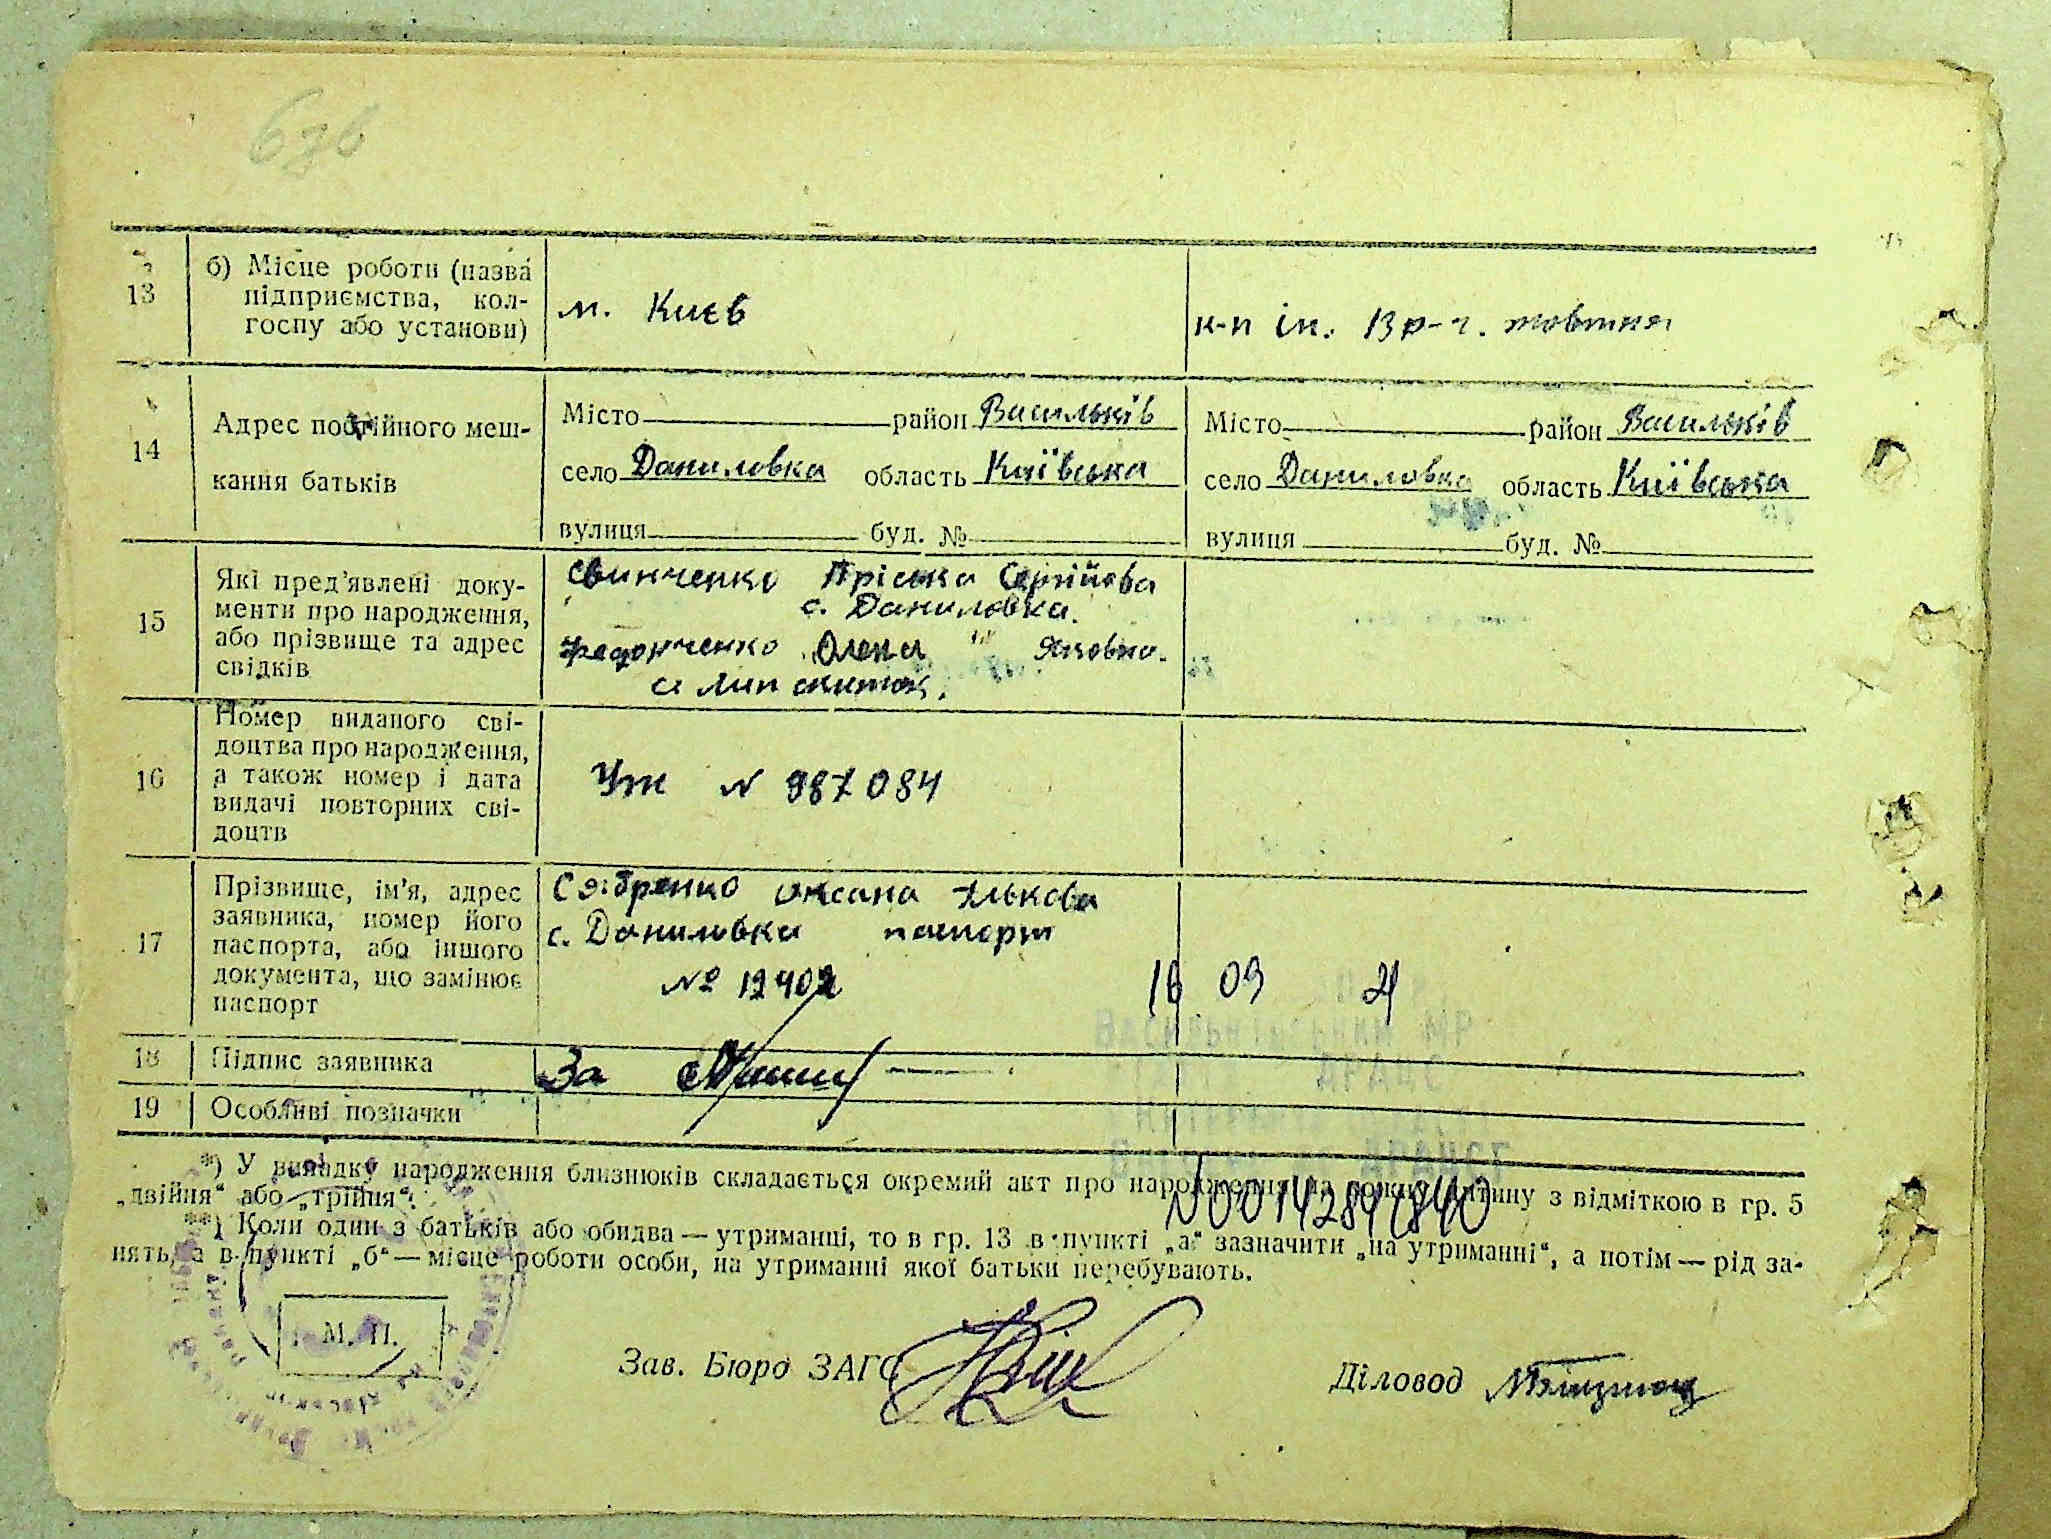 13
б) Місце роботи (назва
підприємства, кол-
госпу або установи)
м. Києв
к-п ім. 13 р-ч. жовтня
14
Адрес постійного меш-
кання батьків
Місто район Васильків
село Даниловка область Київська
вулиця буд. №
Місто район Васильків
село Даниловка область Київська
вулиця буд. №
15
Які пред'явлені доку-
менти про народження,
або прізвище та адрес
свідків
Свинченко Пріська Сергійова
с. Даниловка.
Федонченко Олена Яковна.
с.
16
Номер виданого сві-
доцтва про народження,
а також номер і дата
видачі повторних сві-
доцтв
N 987084
17
Прізвище, ім'я, адрес
заявника, номер його
паспорта, або іншого
документа, що замінює
паспорт
Оксана
с. Даниловка паспорт
№ 12402
16 09 21
Васильківський МР
ДРАЦС
18 Підпис заявника
За
19 Особливі позначки
*) У випадку народження близнюків складається окремий акт про народження на кожну дитину з відміткою в гр. 5
„двійня“ або „трійня“.
N00142841840
**) Коли один з батьків або обидва — утриманці, то в гр. 13 в пункті „а“ зазначити „на утриманні“, а потім — рід за-
нять, а в пункті „б“ — місце роботи особи, на утриманні якої батьки перебувають.
М. П.
Зав. Бюро ЗАГС
Діловод